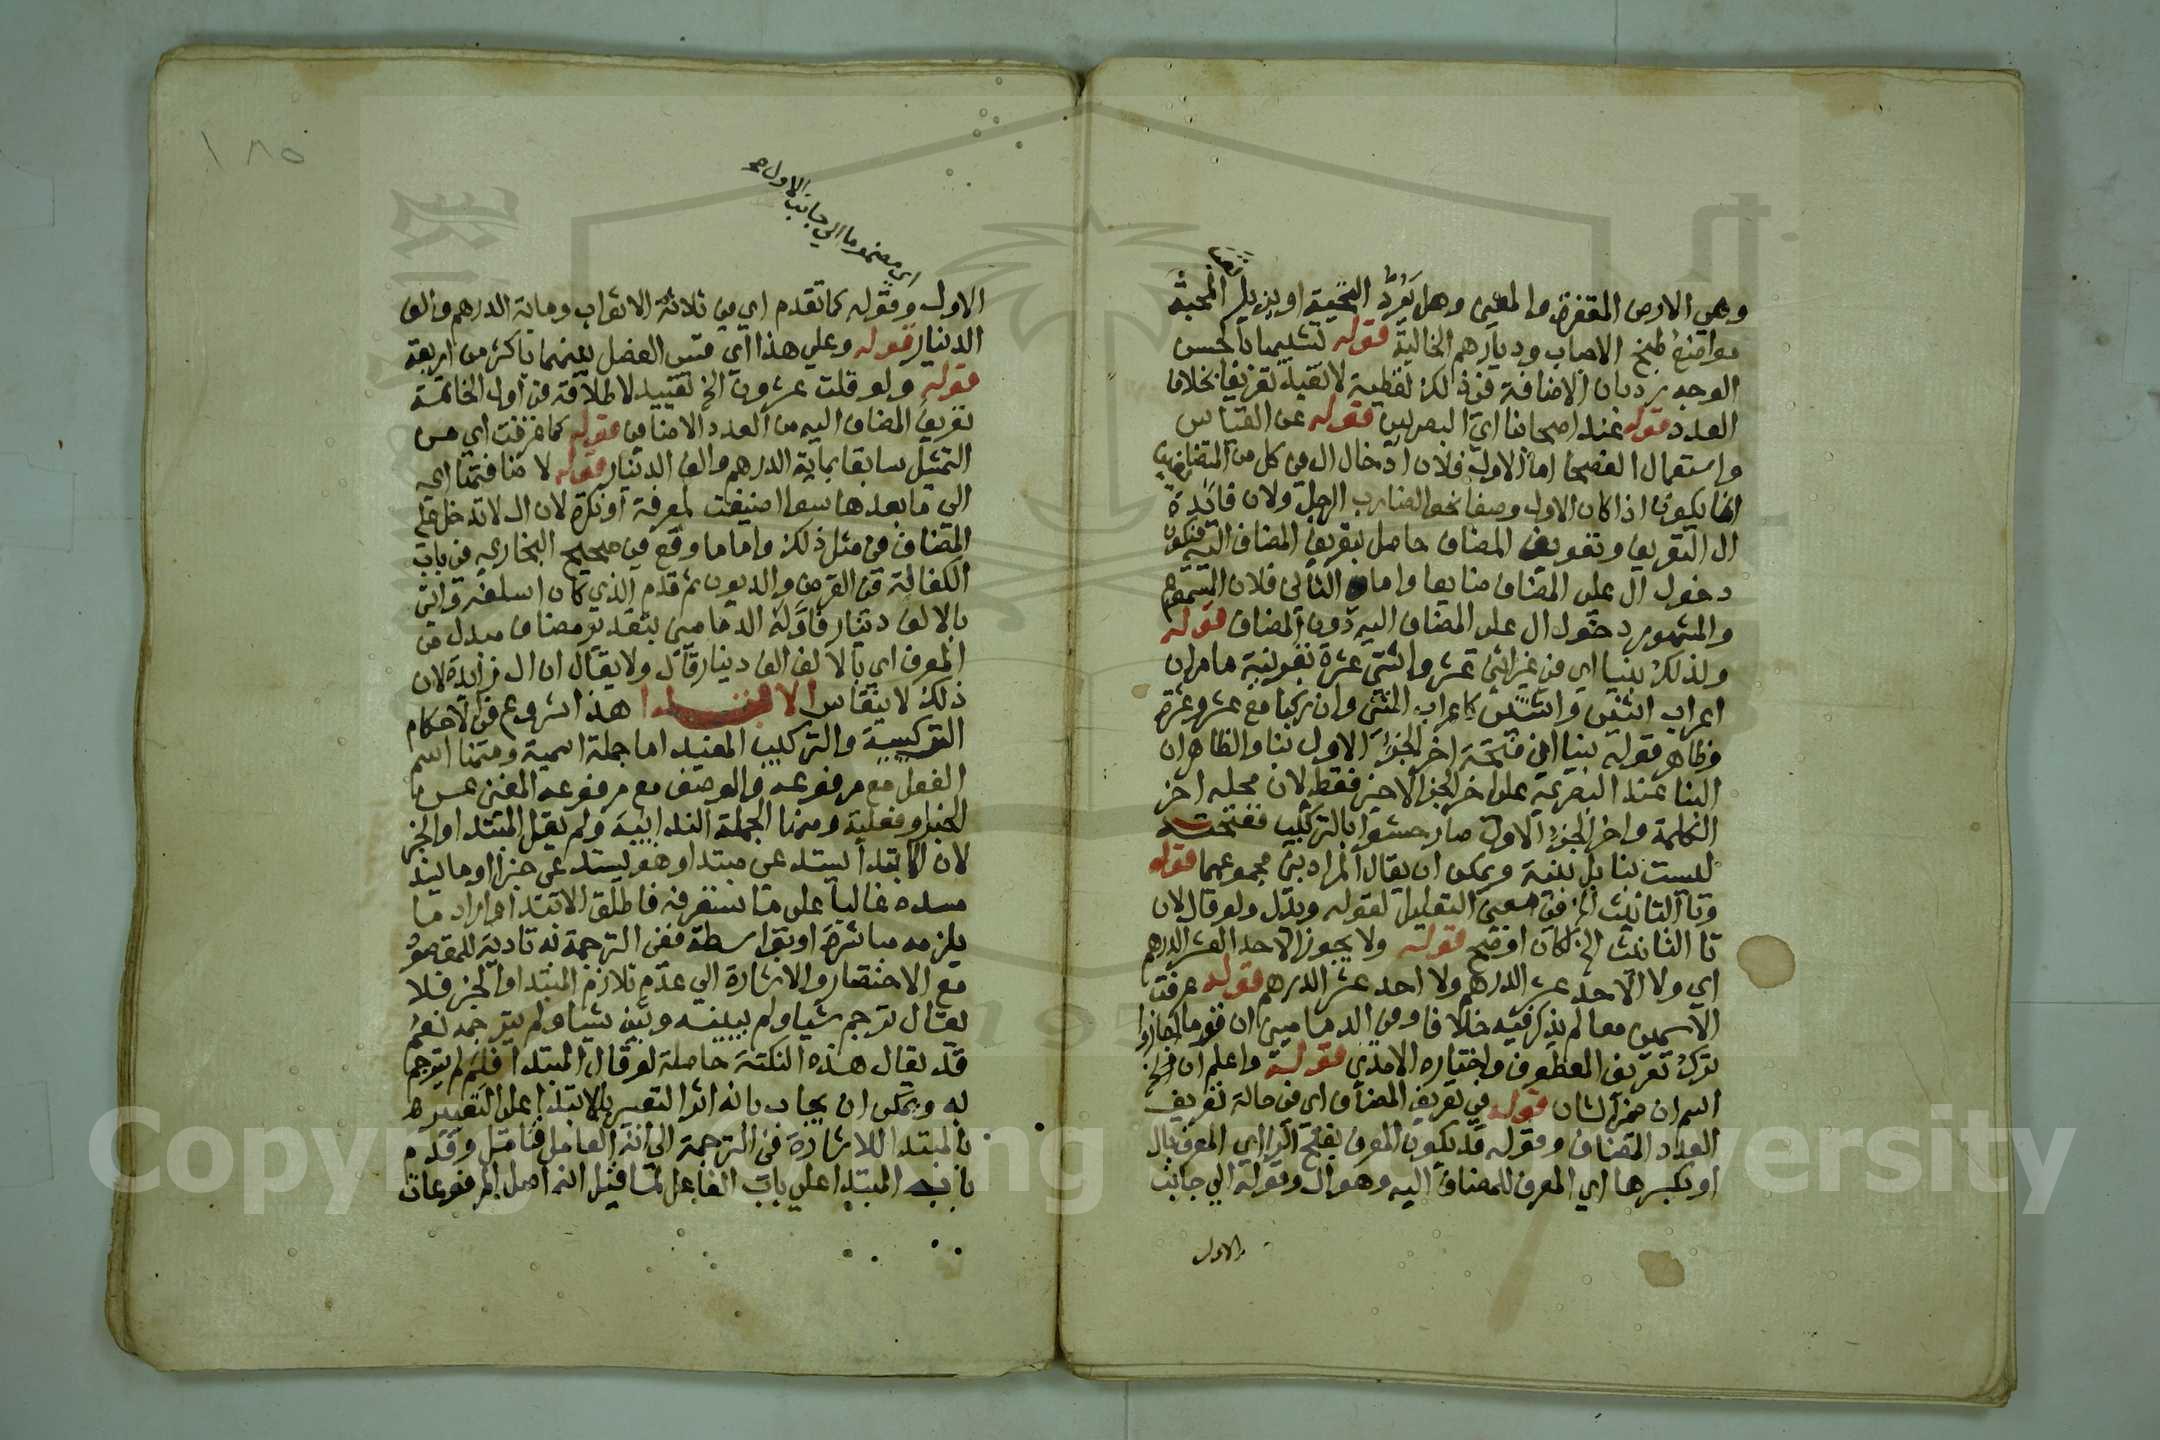 وهي الارض المقفرة والمعنى وهل يرد التحية او يزيل المحبة
مواضع طبخ الاحباب وديارهم الخالية قوله تشبيها بالحسن
الوجه يرد بان الاضافة في ذلك لفظية لا تفيد تعريفا بخلاف
العدد قوله عند اصحابنا اي البصريين قوله عن القياس
واستعمال الفصحا اما الاول فلان ادخال ال في كل من المتضايفين
انما يكون اذا كان الاول وصفا نحو الضارب الرجل ولان فائدة
ال التعريف وتعريف المضاف حاصل بتعريف المضاف اليه فيكون
دخول ال على المضاف ضايعا واما الثاني فلان المسموع
والمشهور دخول ال على المضاف اليه دون المضاف قوله
ولذلك بنيا اي في غير اثنى عشر واثنتي عشرة بقرينة ما مر ان
اعراب اثنين واثنتين كاعراب المثنى وان ركبا مع عشر وعشرة
وظاهر قوله بنيا ان فتحة اخر الجزء الاول بنا والظاهر ان
البنا عند البصرية على اخر الجزء الاخير فقط لان محله اخر
الكلمة واخر الجزء الاول صار حشوا بالتركيب ففتحته
ليست بنا بل بنية ويمكن ان يقال المراد بنى مجموعهما قوله
وتا التانيث الخ في معنى التعليل لقوله وبدل ولو قال لان
تا التانيث الخ لكان اوضح قوله ولا يجوز الاحد العشر الدرهم
اي ولا الاحد عشر الدرهم ولا احد عشر الدرهم قوله عرفت
الاسمين معا لم يذكر فيه خلافا وفي الدماميني ان قوما اجازوا
ترك تعريف المعطوف واختاره الامدي قوله واعلم ان الخ
اسم ان ضمير الشان قوله في تعريف المضاف اي في حالة تعريف
العدد المضاف وقوله قد يكون المعرف بفتح الرا اي المعرف بال
او بكسرها اي المعرف للمضاف اليه وهو ال وقوله الى جانب
الاول
اي مضموما الى جانب الاول
الاول وقوله كما تقدم اي من ثلاثة الاثواب ومائة الدرهم والف
الدينار قوله وعلى هذا اي قس الفصل بينهما باكثر من اربعة
قوله ولو قلت عشرون الخ تقييد لاطلاقه في اول الخاتمة
تعريف المضاف اليه من العدد الاضافي قوله كما عرفت اي من
التمثيل سابقا بماية الدرهم والف الدينار قوله لاضافتها اي
الى ما بعدها سوا اضيفت لمعرفة او نكرة لان ال لا تدخل على
المضاف في مثل ذلك واما ما وقع في صحيح البخاري في باب
الكفالة في القرض والديون ثم قدم الذي كان اسلفه واتى
بالالف دينار فاوله الدماميني بتقدير مضاف مبدل من
المعرف اي بالالف الف دينار قال ولا يقال ان ال زايدة لان
ذلك لا ينقاس الابتدا هذا شروع في الاحكام
التركيبية والتركيب المفيد اما جملة اسمية ومنها اسم
الفعل مع مرفوعه والوصف مع مرفوعه المغني عن
الخبر او فعلية ومنها الجملة الندائية ولم يقل المبتدا والخبر
لان الابتدا يستدعي مبتدا وهو يستدعي خبرا او ما يسد
مسده غالبا على ما ستعرفه فاطلق الابتدا واراد ما
يلزمه مباشرة او بواسطة ففي الترجمة به تادية للمقصود
مع الاختصار والاشارة الى عدم تلازم المبتدا والخبر فلا
يقال ترجم شيا ولم يبينه وبين شيا ولم يترجمه نعم
قد يقال هذه النكتة حاصلة لو قال المبتدا فلم لم يترجم
به ويمكن ان يجاب بانه اثر التعبير بالابتدا على التعبير
بالمبتدا للاشارة في الترجمة الى انه العامل فتامل وقدم
باب المبتدا على باب الفاعل لما قيل انه اصل المرفوعات
١٨٥
Copyright © King Saud University